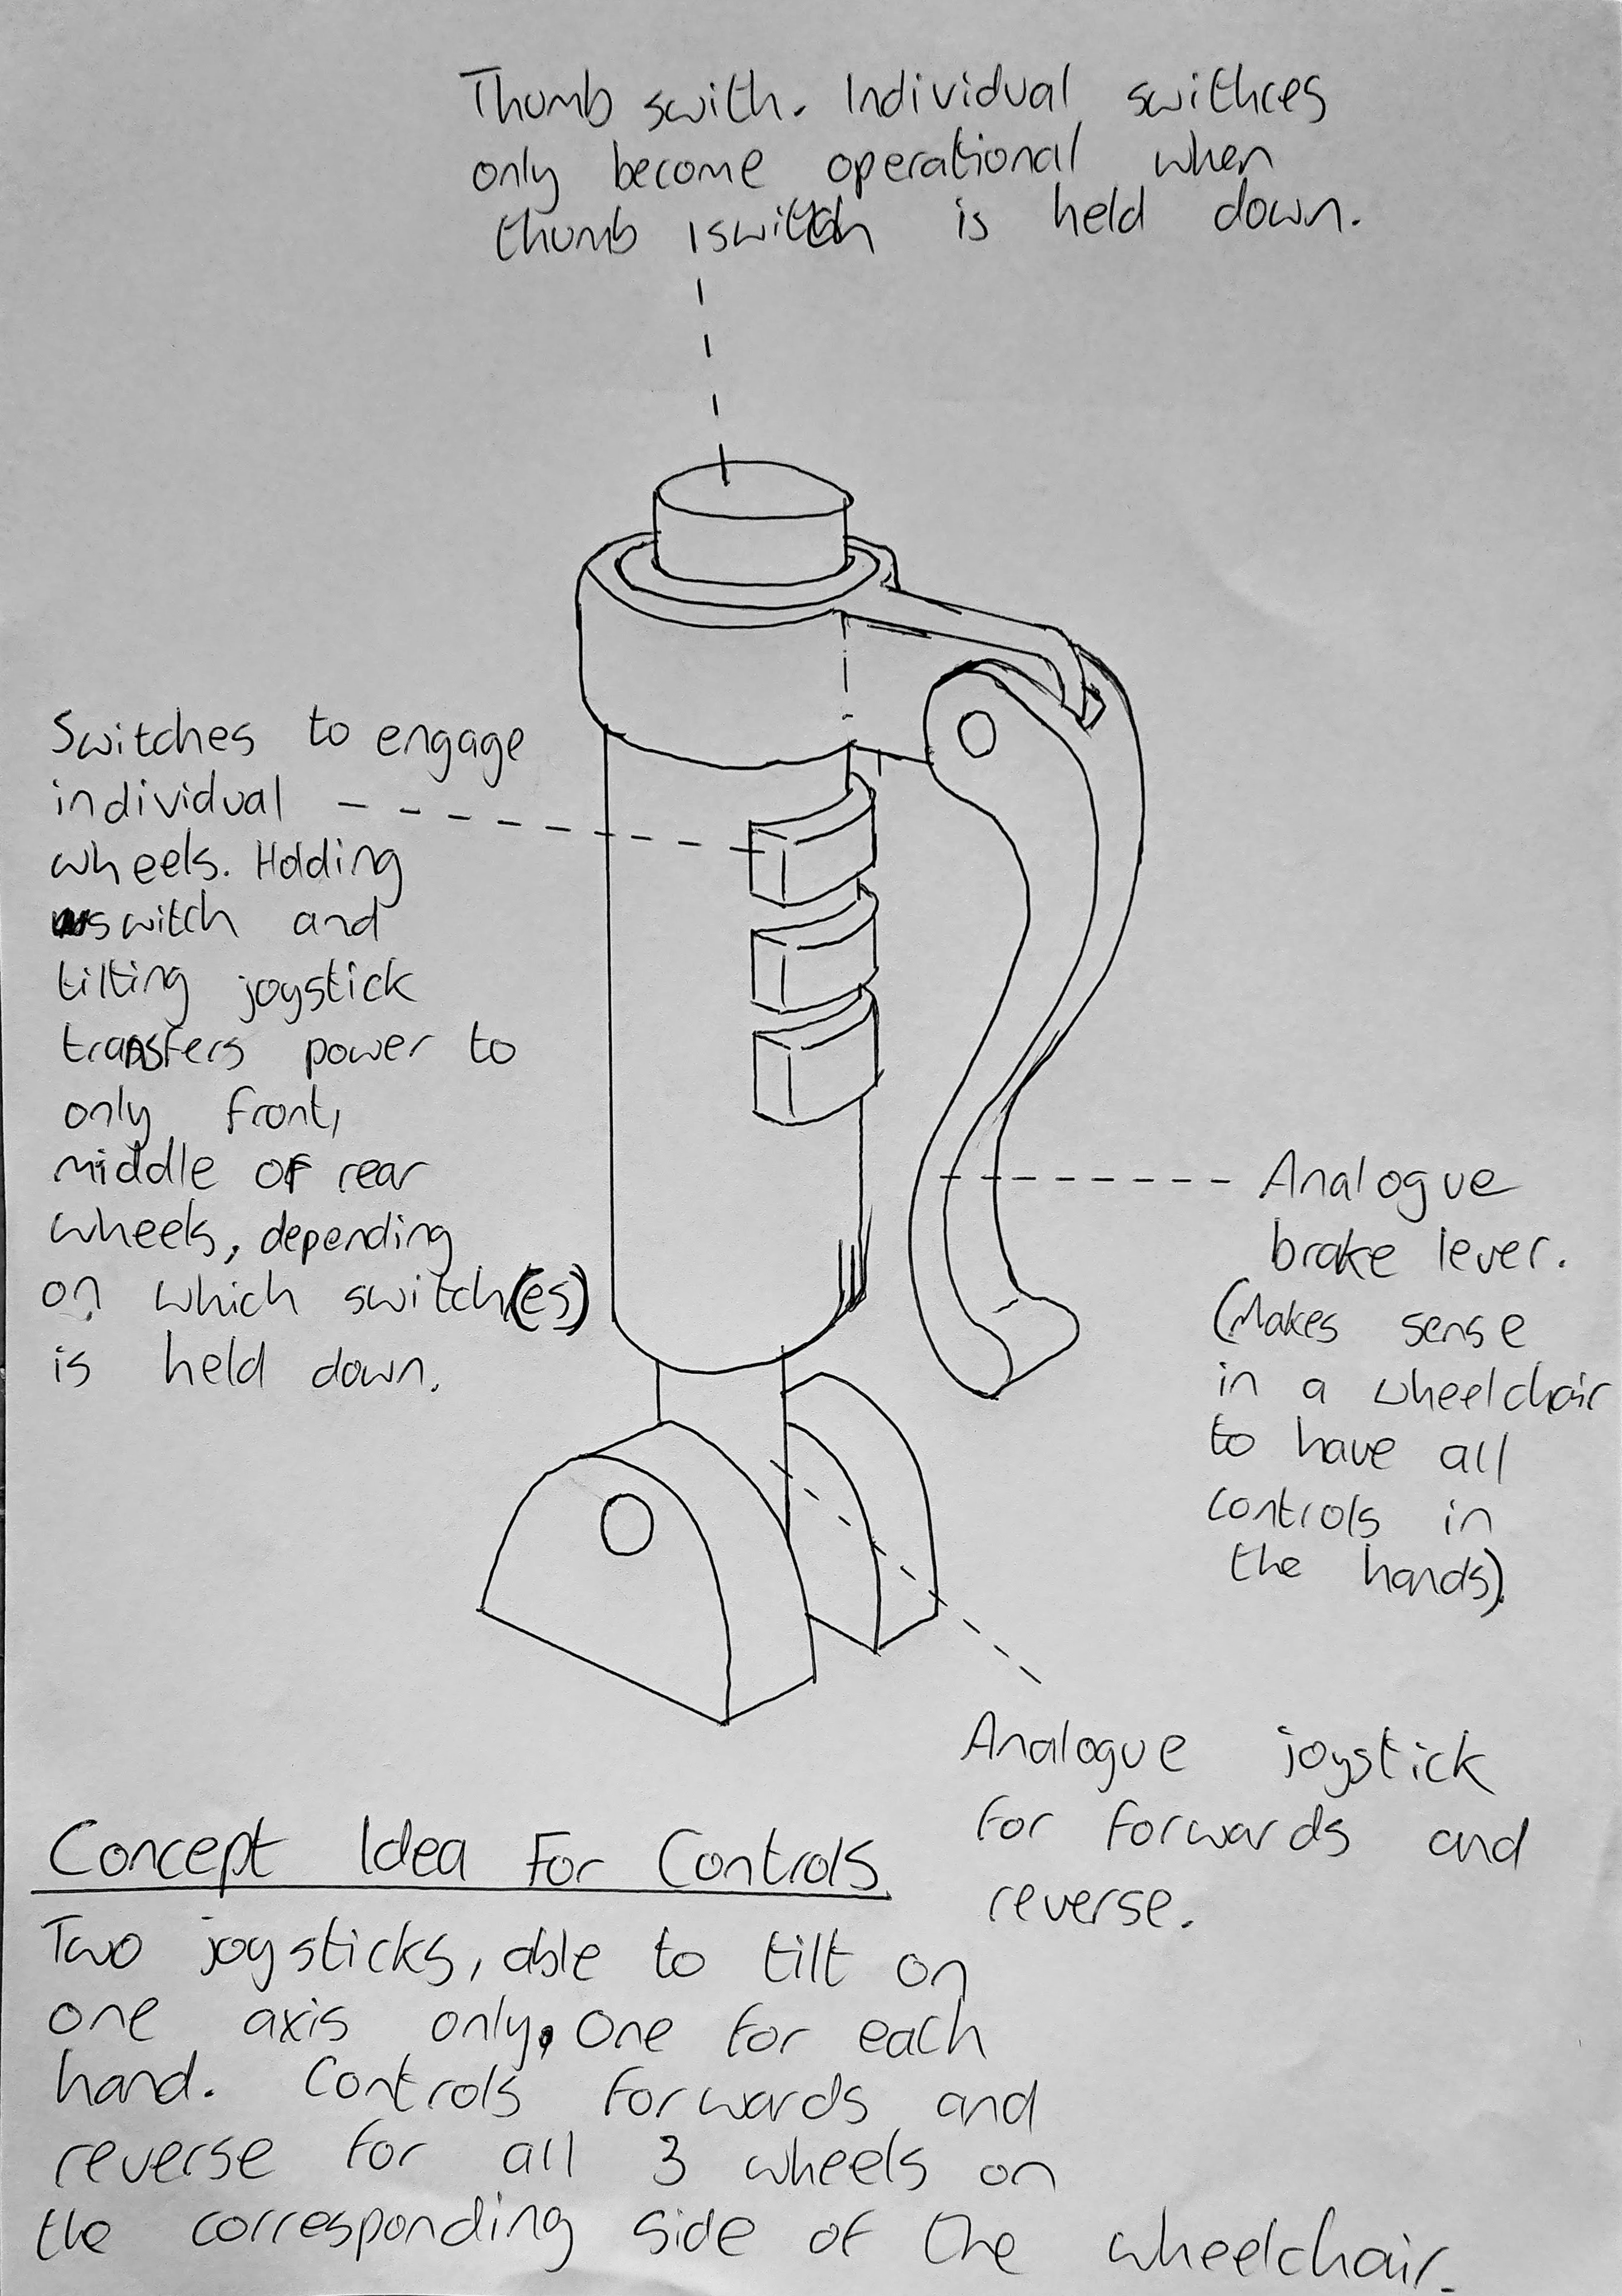 Thumb swith. Individual swithces
only become operational when
thumb switch is held down.
Switches to engage
individual
wheels. Holding
switch and
tilting joystick
transfers power to
only front,
middle or rear
wheels, depending
on which switch(es)
is held down.
Analogue
brake lever.
(Makes sense
in a wheelchair
to have all
controls in
the hands).
Analogue joystick
for forwards and
reverse.
Concept Idea For Controls
Two joysticks, able to tilt on
one axis only, one for each
hand. Controls forwards and
reverse for all 3 wheels on
the corresponding side of the wheelchair.